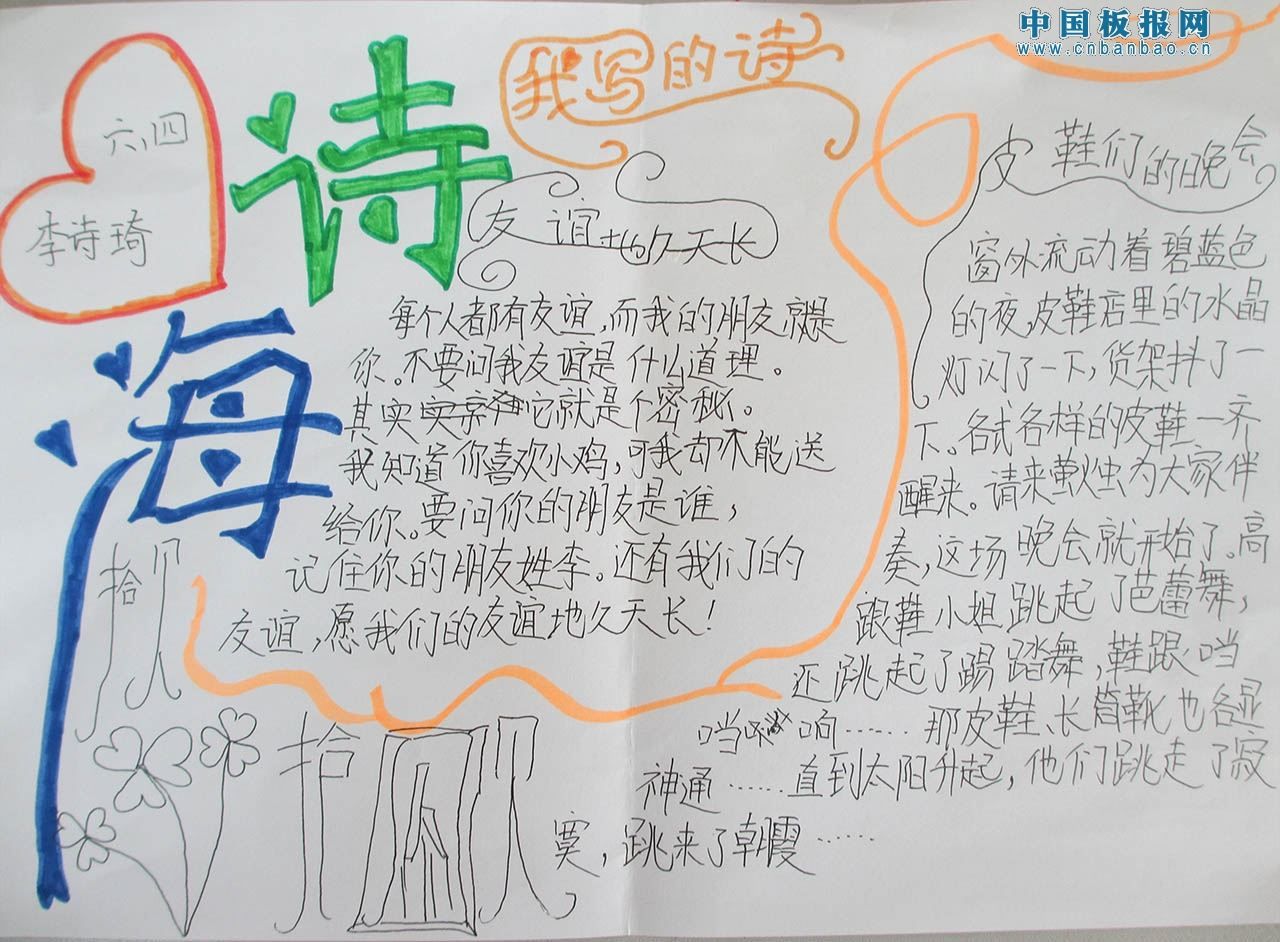 中国板报网
www.cnbanbao.cn
六.四
李诗琦
诗
海
拾贝
拾贝
我写的诗
友谊地久天长
每个人都有友谊,而我的朋友就是
你。不要问我友谊是什么道理。
其实它就是个密秘。
我知道你喜欢小鸡,可我却不能送
给你。要问你的朋友是谁,
记住你的朋友姓李。还有我们的
友谊,愿我们的友谊地久天长!
皮鞋们的晚会
窗外流动着碧蓝色
的夜,皮鞋店里的水晶
灯闪了一下,货架抖了一
下。各式各样的皮鞋一齐
醒来。请来萤火虫为大家伴
奏,这场晚会就开始了。高
跟鞋小姐跳起了芭蕾舞,
还跳起了踢踏舞,鞋跟当
当响……那皮鞋、长筒靴也各显
神通……直到太阳升起,他们跳走了寂
寞,跳来了朝霞……